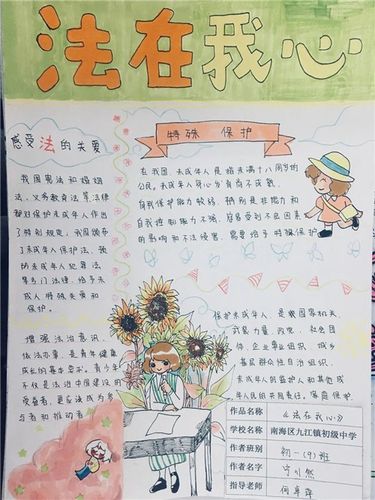 法在我心
感受法的关爱
我国宪法和婚姻
法、义务教育法等法律
都对保护未成年人作出
了特别规定。我国颁布
了未成年人保护法、预
防未成年人犯罪法
等专门法律,给予未
成人特殊关爱和
保护。
增强法治意识、
依法办事,是青年健康
成长的基本要求。青少年
不仅是法治中国建设的
受益者,更应该成为参
与者和推动者
特殊 保护
在我国,未成年人是指未满十八周岁的
公民。未成年人身心发育尚不成熟,
自我保护能力较弱,辨别是非能力和
自我控制能力不强,容易受到不良因素
的影响和不法侵害,需要给予特殊保护。
保护未成年人,是我国国家机关、
武装力量、政党、社会团
体、企业事业组织、城乡
基层群众性自治组织、
未成年人的监护人和其他成
年人民的共同责任。家庭保护、
作品名称 《法在我心》
学校名称 南海区九江镇初级中学
作者班别 初一(9)班
作者名字
指导老师